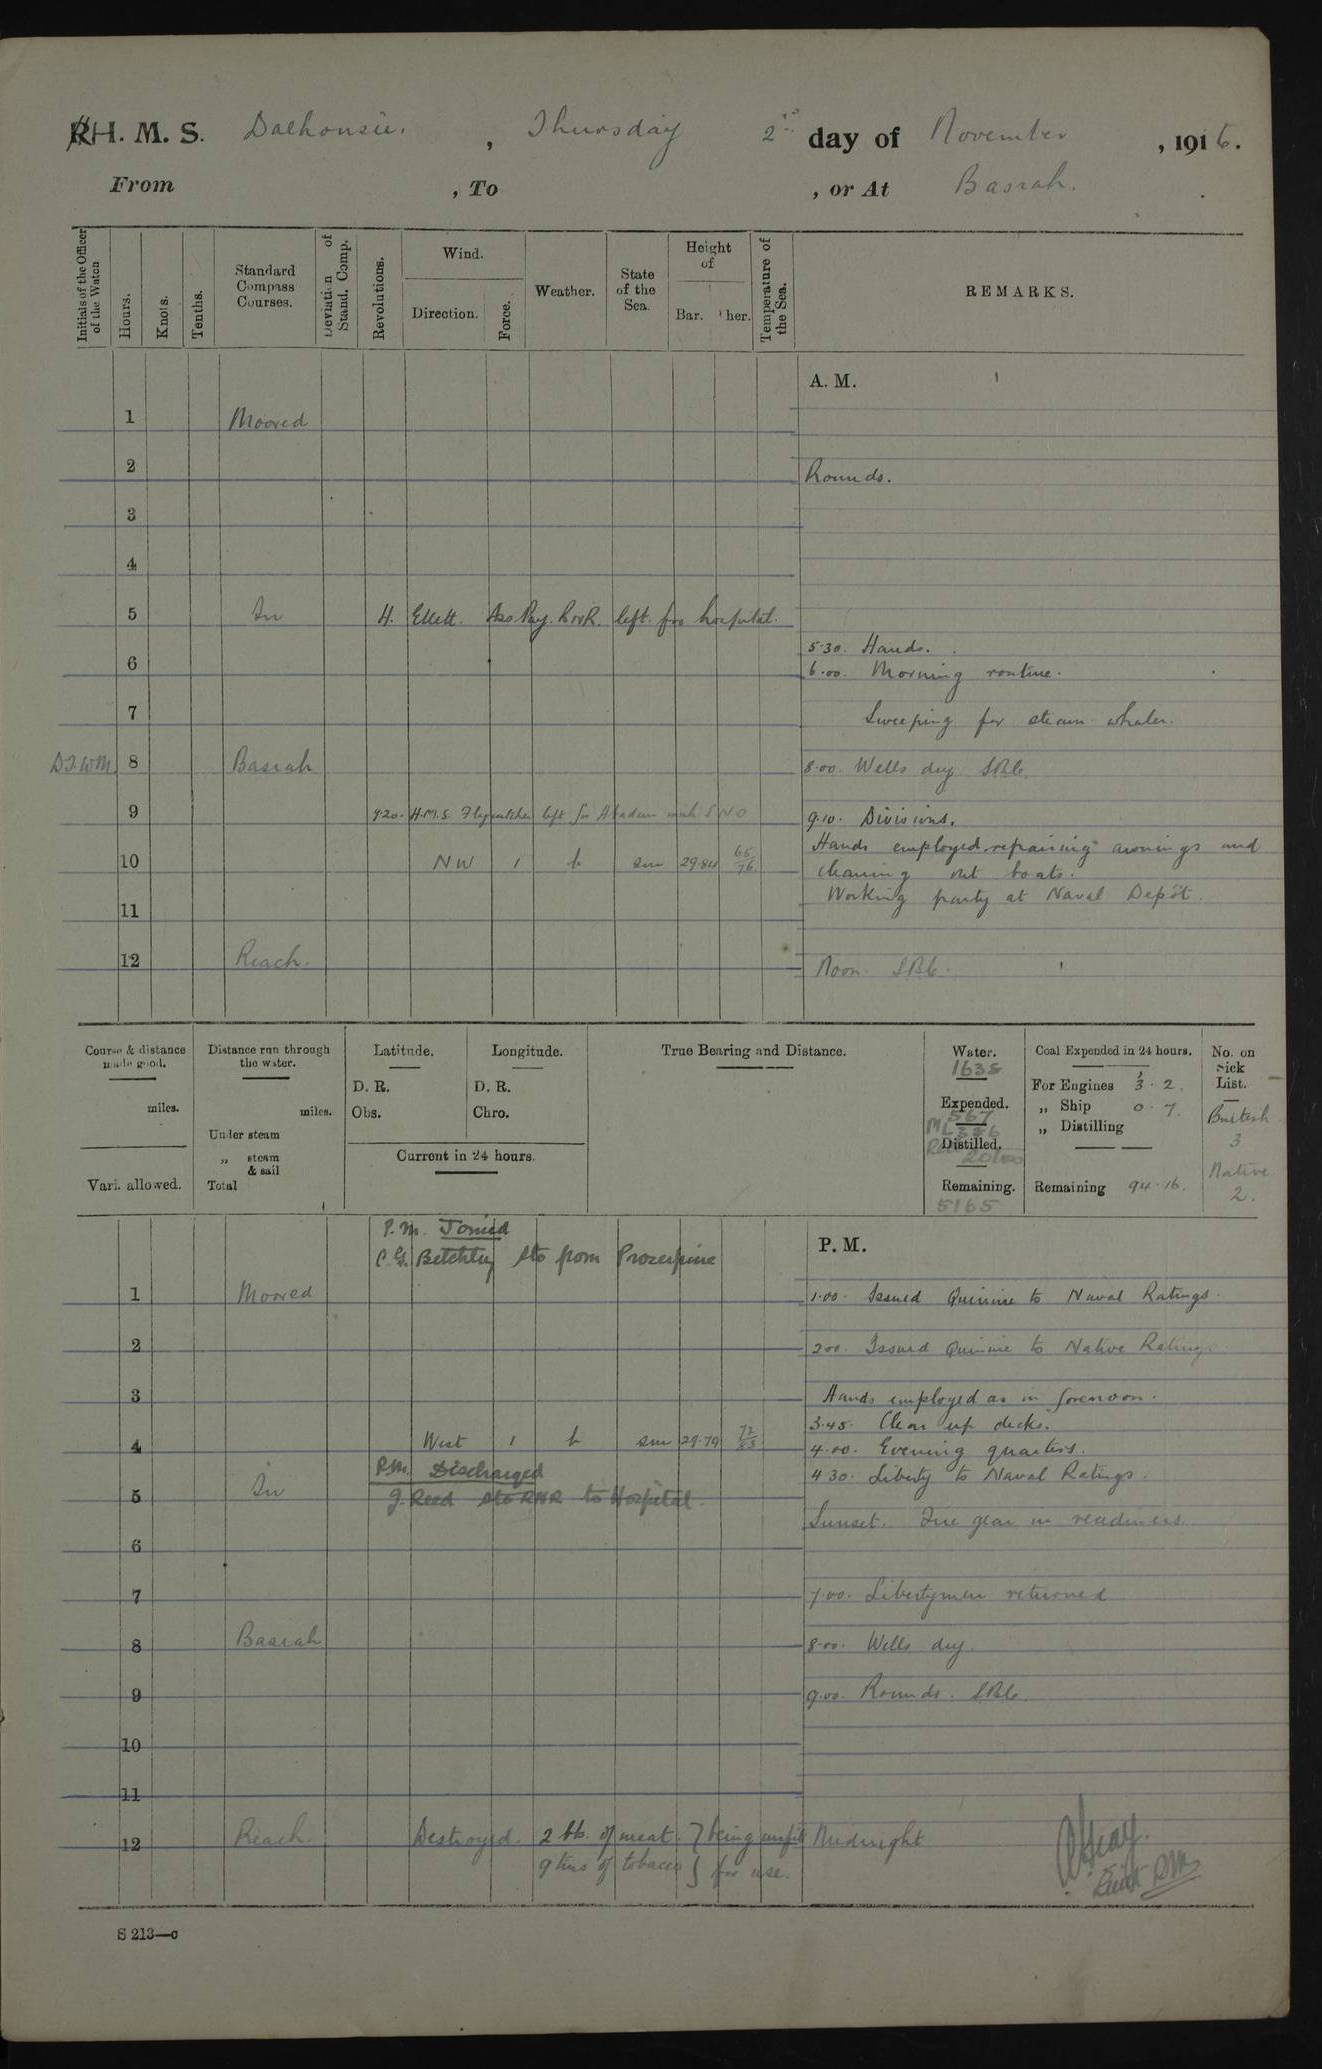 H. M. S. Dalhousie. , Thursday 2nd day of November , 1916.
From , To , or At Basrah.
Initials of the Officer of the Watch
Hours.
Knots.
Tenths.
Standard Compass Courses.
Deviation of Stand. Comp.
Revolutions.
Wind.
Direction.
Force.
Weather.
State of the Sea.
Height of
Bar.
Ther.
Temperature of the Sea.
REMARKS.
A. M.
1 Moored
2 Rounds.
3
4
5 In H. Ellett. Ass. Pay. R.N.R. left for hospital.
5.30. Hands.
6 6.00. Morning routine.
7 Sweeping for steam whaler.
D.J.W.M. 8 Basrah 8.00. Wells dry. SBC.
9 9.20. H.M.S. Flycatcher left for Abadan with S.N.O 9.10. Divisions.
Hands employed repairing awnings and
10 NW 1 b sm 29.84 65/76 cleaning out boats.
Working party at Naval Depôt.
11
12 Reach. Noon. SBC.
Course & distance made good.
miles.
Vari. allowed.
Distance run through the water.
miles.
Under steam
„ steam & sail
Total
Latitude.
D. R.
Obs.
Longitude.
D. R.
Chro.
Current in 24 hours.
True Bearing and Distance.
Water.
1635
Expended.
567
Distilled.
Remaining.
5165
Coal Expended in 24 hours.
For Engines 3.2.
„ Ship 0.7.
„ Distilling
Remaining 94.16.
No. on Sick List.
British
3
Native
2.
P.M. Joined
C.G. Betchley Sto from Proserpine
P. M.
1 Moored 1.00. Issued Quinine to Naval Ratings.
2 2.00 Issued Quinine to Native Ratings.
3 Hands employed as in forenoon.
3.45. Clear up decks.
4 West 1 b sm 29.79 72/83 4.00. Evening quarters.
P.M. Discharged 4.30. Liberty to Naval Ratings.
5 In J. Reed Sto RNR to Hospital.
Sunset. Fire gear in readiness.
6
7 7.00. Libertymen returned
8 Basrah 8.00. Wells dry.
9 9.00. Rounds. SBC.
10
11
12 Reach. Destroyed. 2 lbs. of meat. } being unfit Midnight
9 tins of tobacco } for use.
Lieut RIM
S 213—c